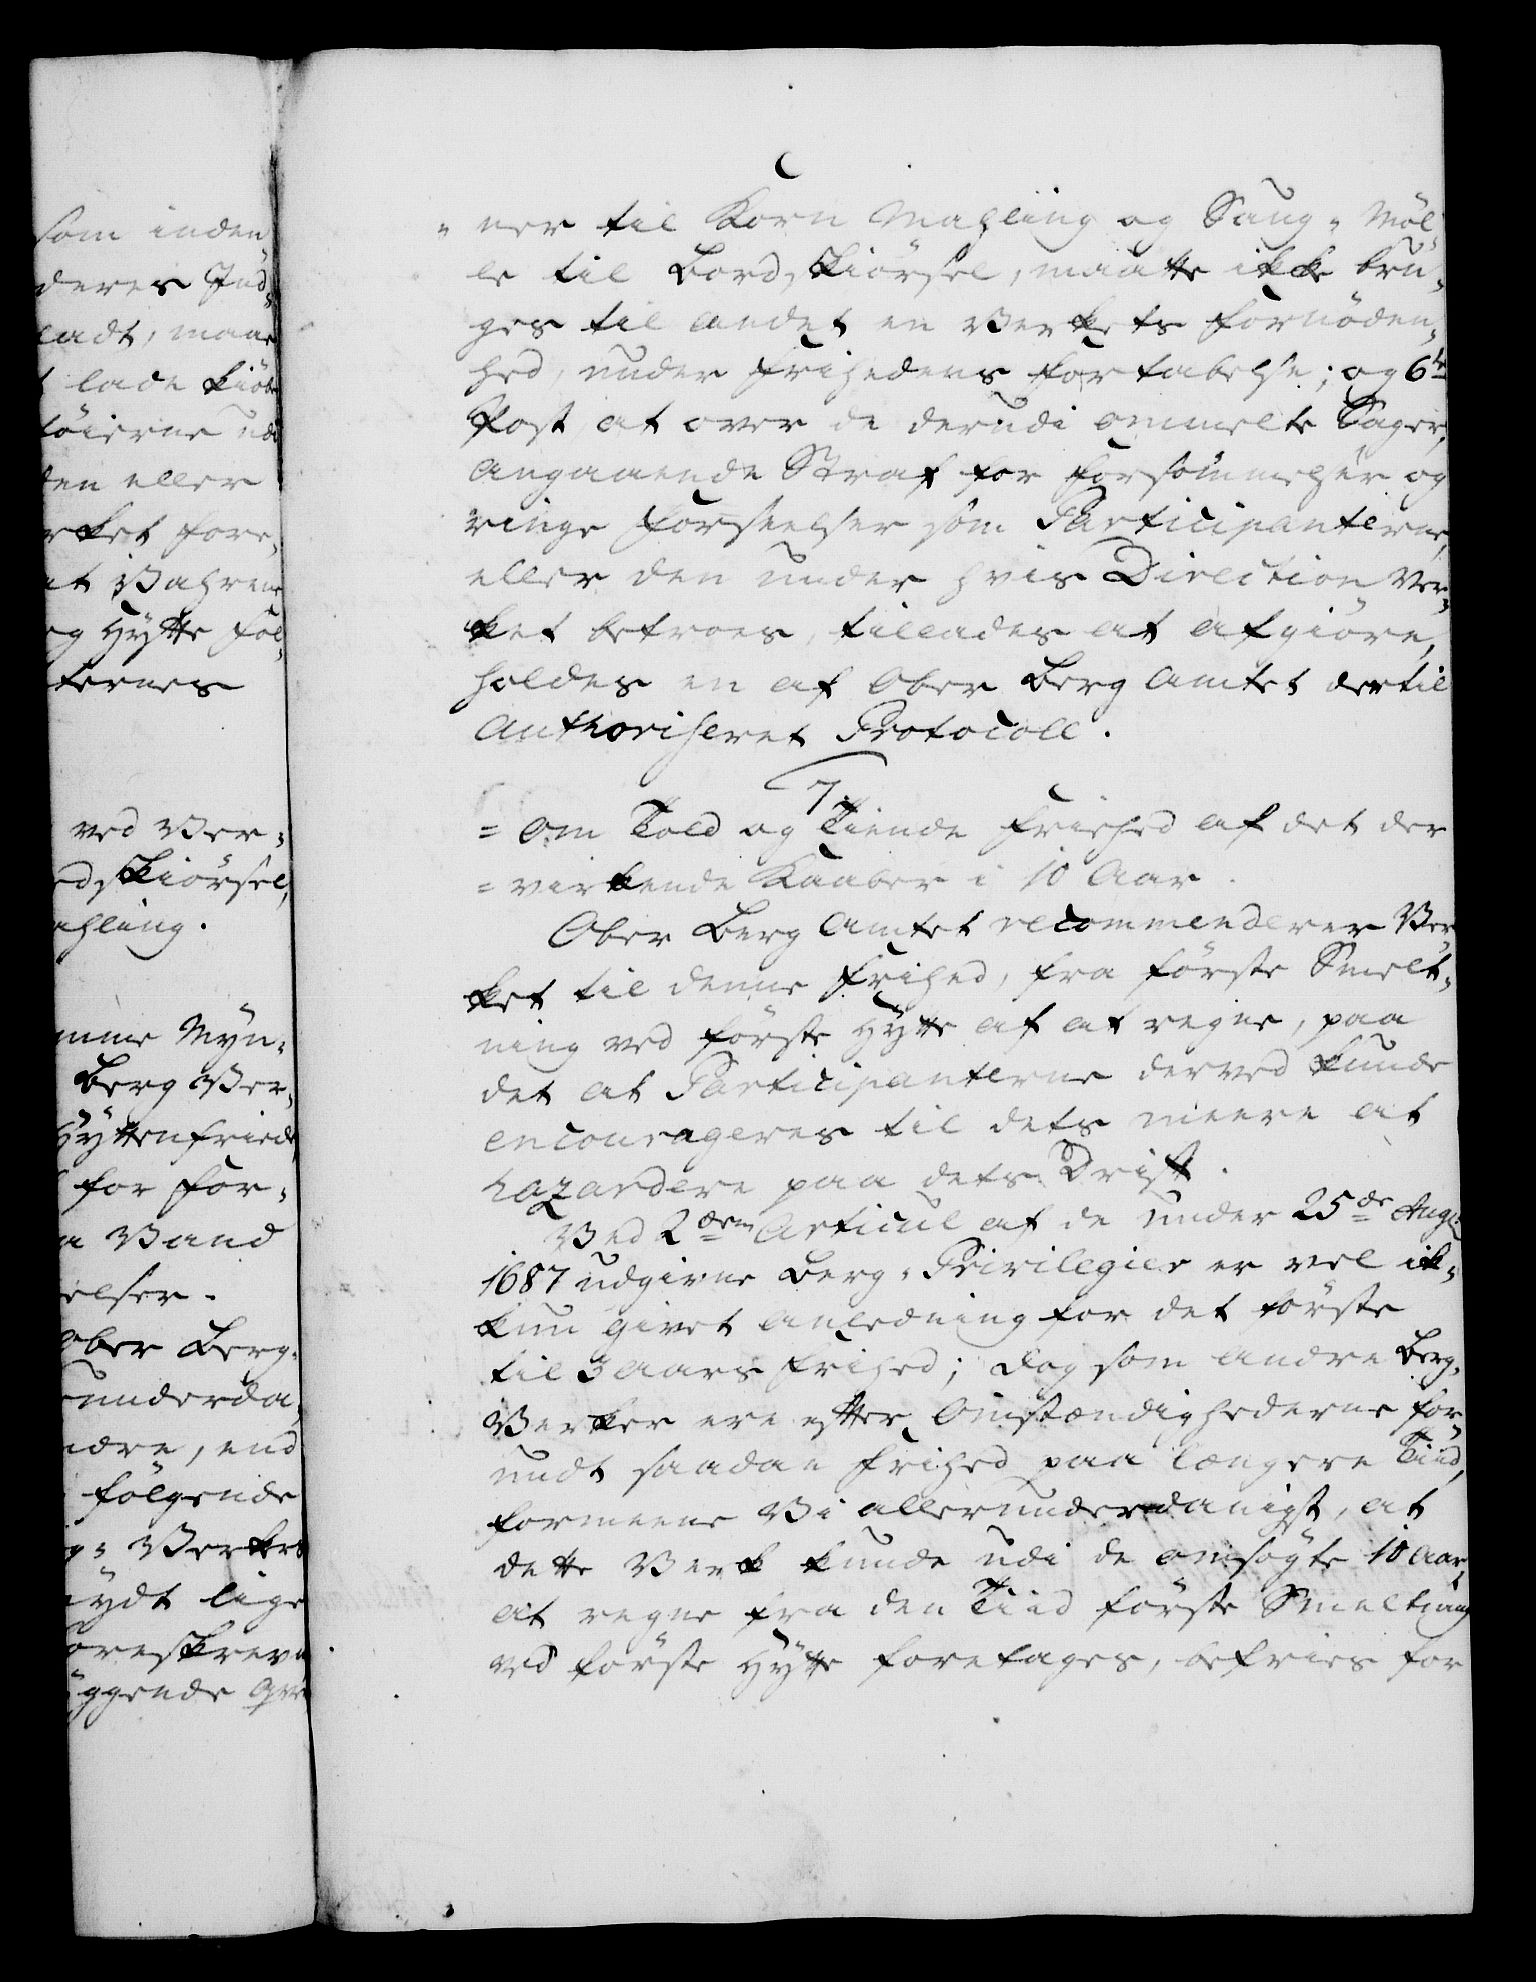 som inden
deres Ind,
ladt, maae
lade kiöbe
töierne udi
den eller
rket fore,
at Vahrene
og Hÿtte Fol,
ternes
ved Ver,
ed, Kiörsel,
ahling.
mme Mÿn,
Berg Ver,
Hÿttenfriede
for For,
a Vand
elser.
Ober Berg,
underda,
ndre, end
følgende
g, Verkes
nydt lige
foreskrevn
ÿggende
ner til Korn Mahling og Saug, Möl,
le til Bord, Kiörsel, maatte ikke bru,
ges til andet en Verkets Fornöden,
hed, under Frihedens Fortabelse; og 6te
Post, at over de derudi ommelte Sager,
angaaende Straf for Forsömmelser og
ringe Forseelser som Participanterne,
eller den under hvis Direction Ver,
ket betroes, tillades at afgiöre,
holdes en af Ober Berg Amtet dertil
authoriseret Protocoll.
7.
= Om Told og Tiende Friehed af det der
= virkende Kaaber i 10 Aar.
Ober Berg Amtet recommenderer Ver,
ket til denne Frihed, fra förste Smelt,
ning ved förste Hÿtte af at regne, paa
det at Participanterne derved kunde
encourageres til dets meere at
hazardere paa dets Drift.
Ved 2den Articul af de under 25de Aug:
1687 udgivne Berg, Privilegier er vel ik,
kun givet anledning for det förste
til 3 Aars Frihed; dog som andre Berg,
Verker ere efter Omstændighederne for,
undt saadan Frihed paa længere Tiid,
formeene Vi allerunderdanigst, at
dette Verk kunde udi de ansögte 10 Aar,
at regne fra den Tiid förste Smeltning
ved förste Hÿtte foretages, befries for